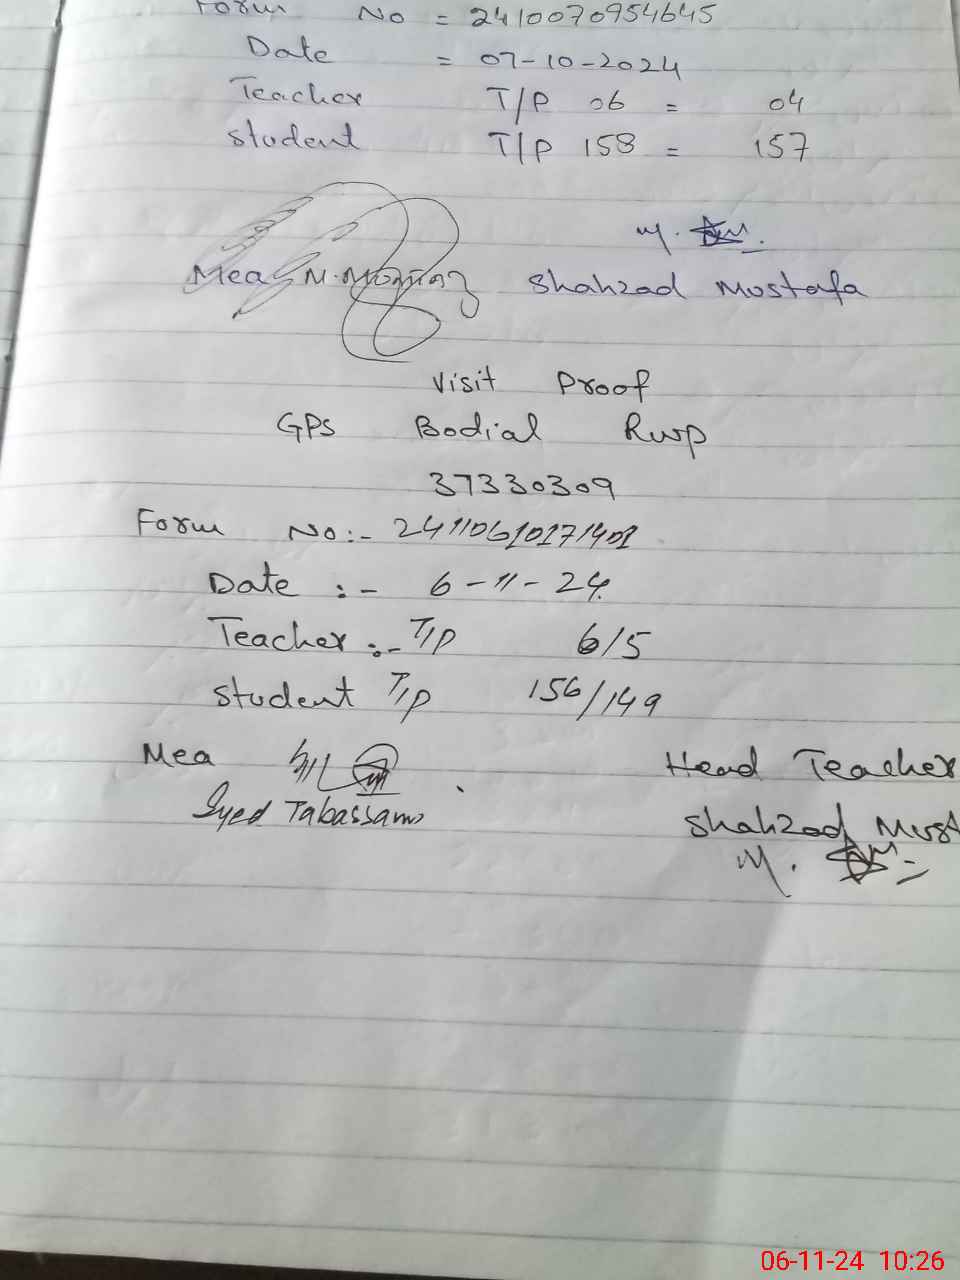 Form No = 2410070954645
Date = 07-10-2024
Teacher T/P 06 = 04
Student T/P 158 = 157
Mea
Shahzad Mostafa
Visit Proof
GPS Bodial Rwp
37330309
Form No:- 24110610171401
Date :- 6-11-24
Teacher :- T/P 6/5
Student T/P 156/149
Mea Head Teacher
Syed Tabassam Shahzad Must
06-11-24 10:26